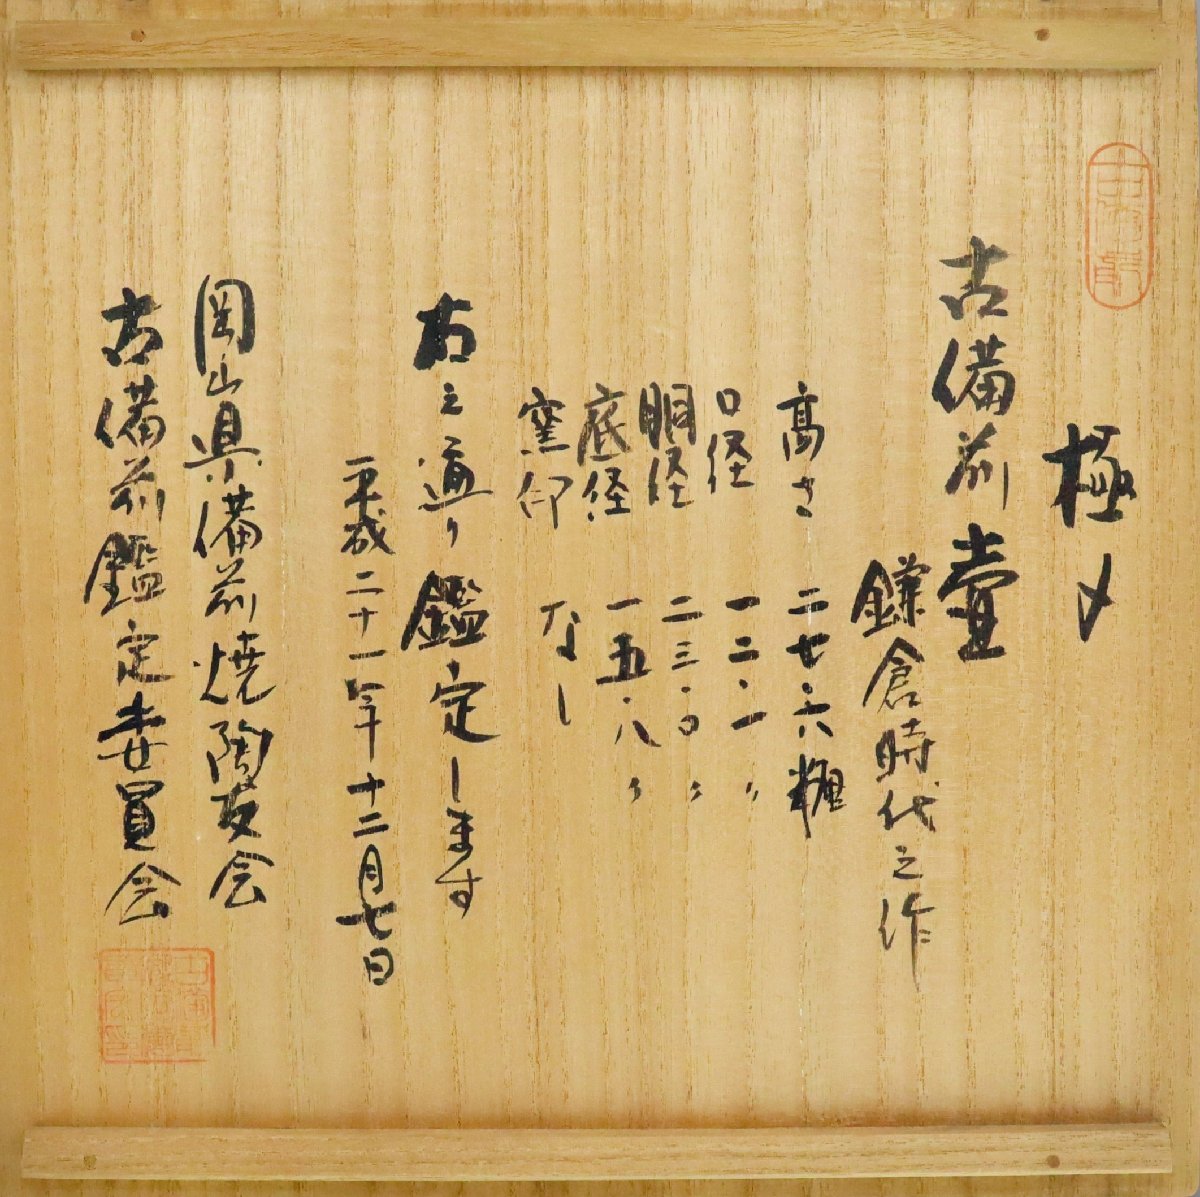 極メ
古備前壷
鎌倉時代之作
高さ 二七・六糎
口径 一二・一〃
胴径 二三・〇〃
底径 一五・八〃
窯印 なし
右之通り鑑定します
平成二十一年十二月七日
岡山県備前焼陶友会
古備前鑑定委員会